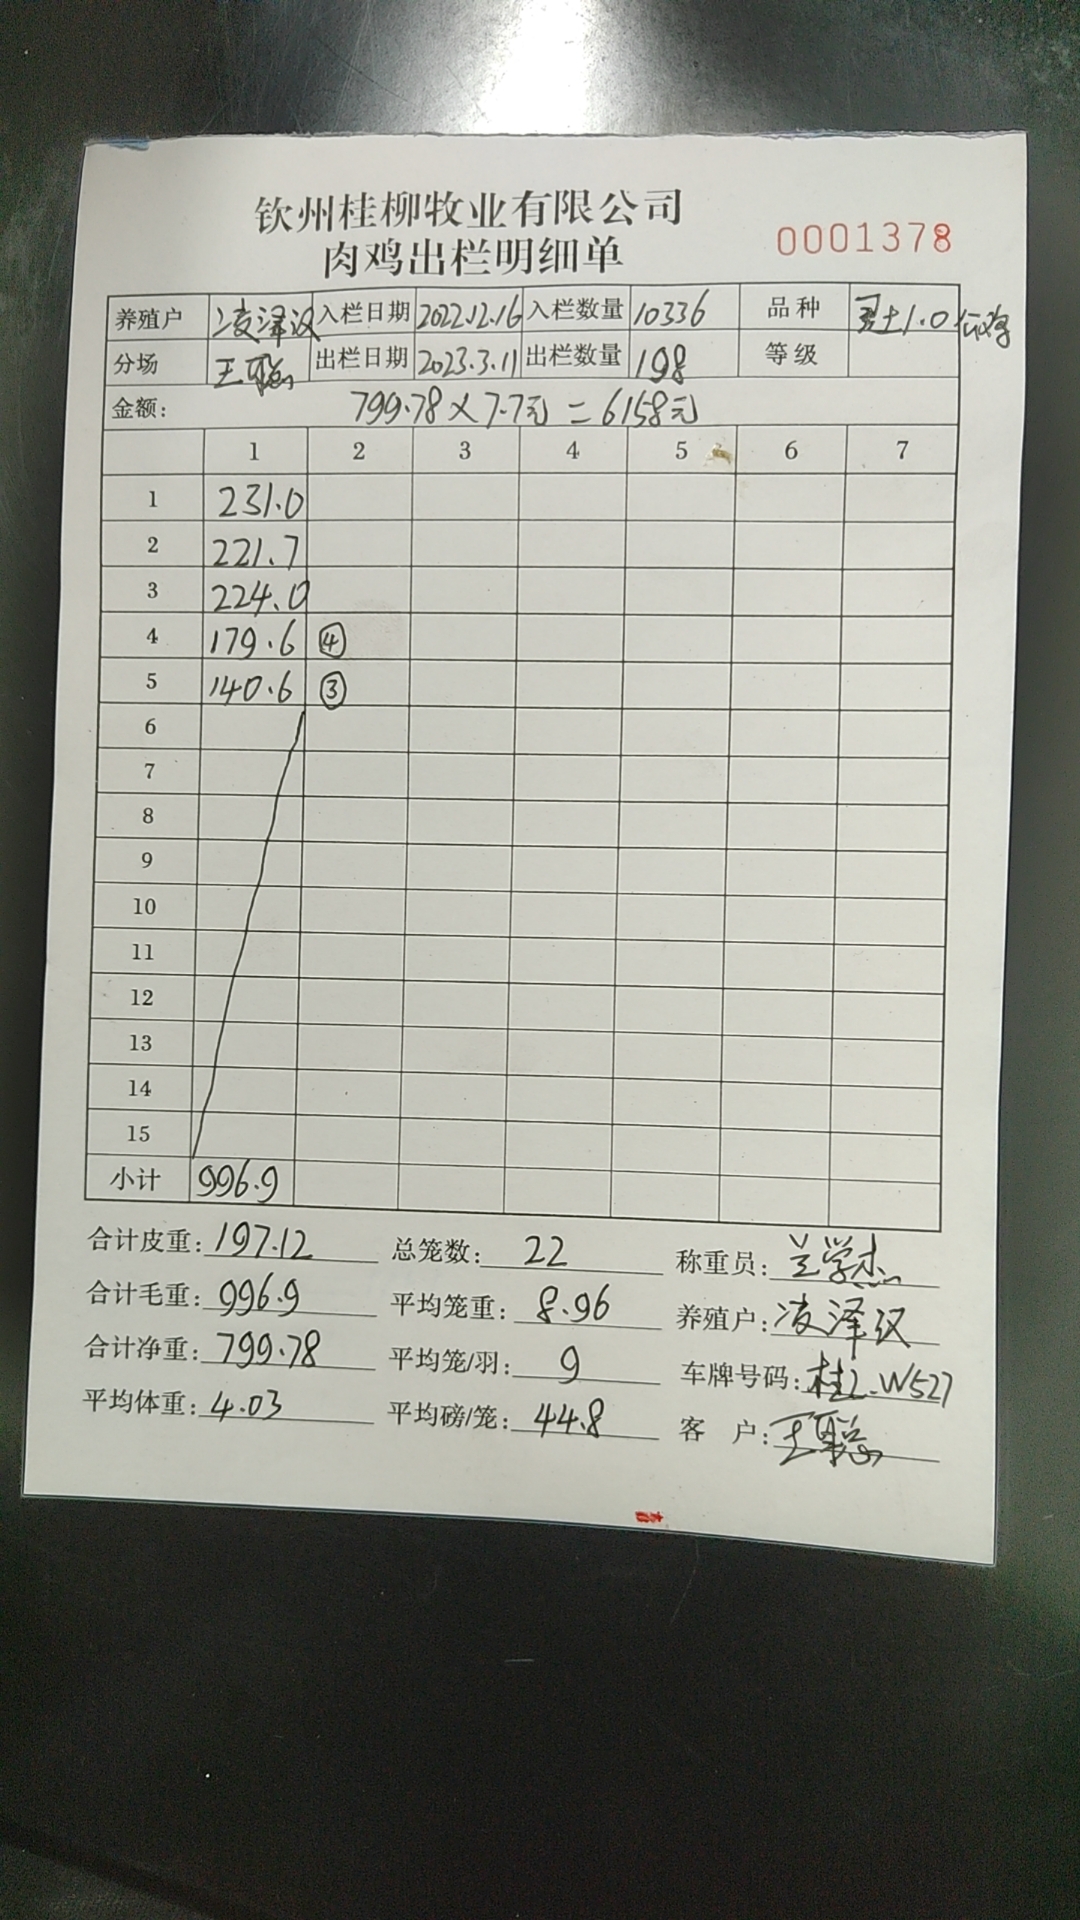 钦州桂柳牧业有限公司
肉鸡出栏明细单
0001378
养殖户 凌泽汉 入栏日期 2022.12.16 入栏数量 10336 品种 土1.0
分场 王聪 出栏日期 2023.3.11 出栏数量 198 等级
金额: 799.78×7.7元=6158元
1 2 3 4 5 6 7
1 231.0
2 221.7
3 224.0
4 179.6 ④
5 140.6 ③
6
7
8
9
10
11
12
13
14
15
小计 996.9
合计皮重: 197.12 总笼数: 22 称重员: 兰学杰
合计毛重: 996.9 平均笼重: 8.96 养殖户: 凌泽汉
合计净重: 799.78 平均笼/羽: 9 车牌号码: 桂L.W527
平均体重: 4.03 平均磅/笼: 44.8 客 户: 王聪